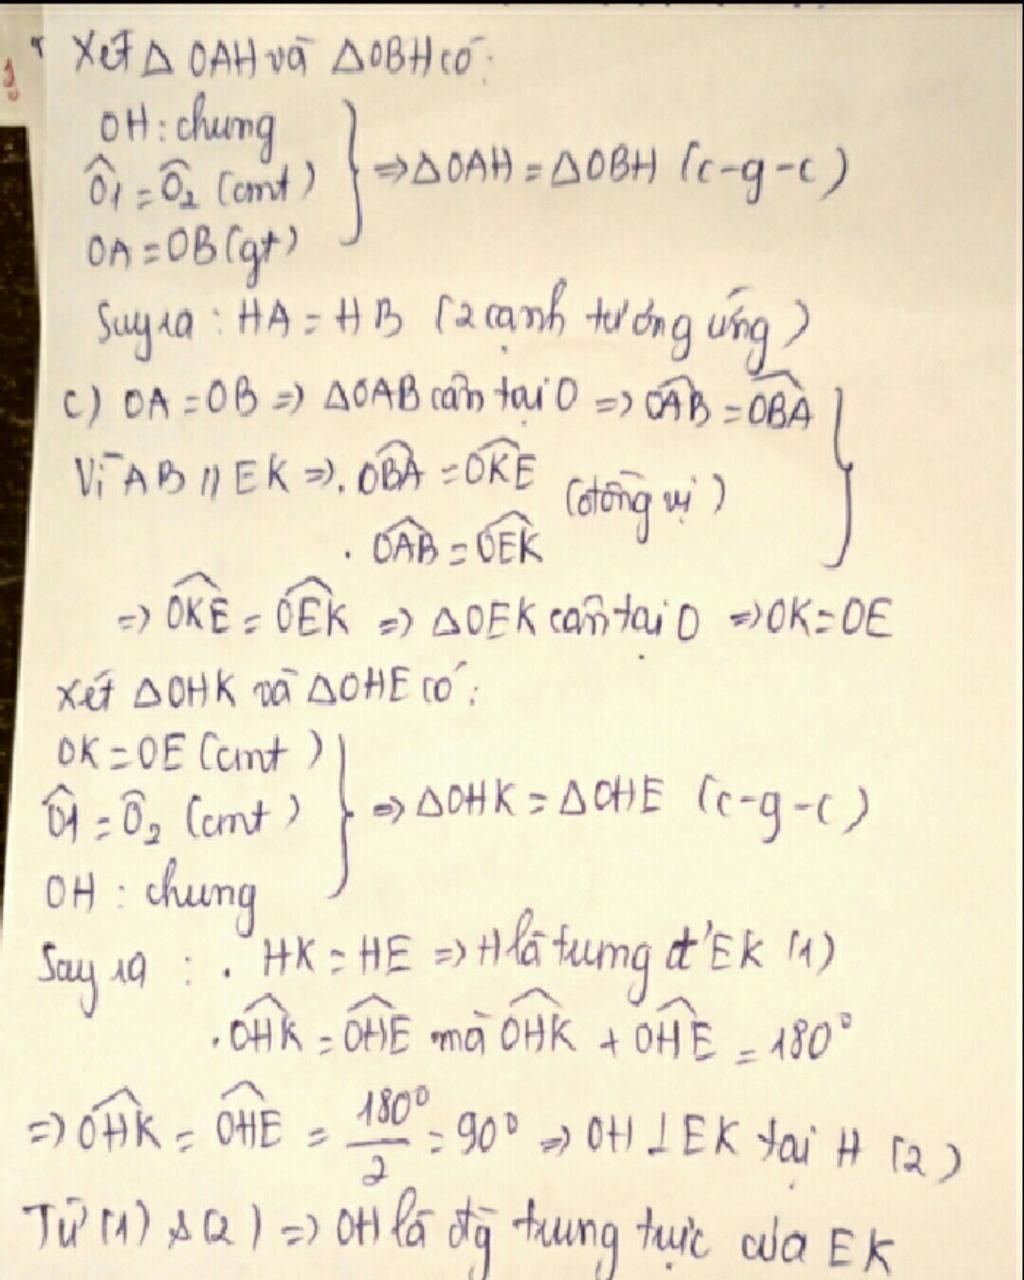 Xét Δ OAH và ΔOBH có:
OH : chung
Ô1 = Ô2 (cmt) } ⇒ ΔOAH = ΔOBH (c-g-c)
OA = OB (gt)
Suy ra : HA = HB (2 cạnh tương ứng)
c) OA = OB => ΔOAB cân tại O => OAB̂ = OBÂ }
Vì AB // EK =>. OBÂ = OKÊ (đồng vị)
. OAB̂ = OEK̂
=> OKÊ = OEK̂ => ΔOEK cân tại O => OK = OE
Xét ΔOHK và ΔOHE có:
OK = OE (cmt)
Ô1 = Ô2 (cmt) } => ΔOHK = ΔOHE (c-g-c)
OH : chung
Suy ra : . HK = HE => H là trung đ' EK (1)
. OHK̂ = OHÊ mà OHK̂ + OHÊ = 180°
=> OHK̂ = OHÊ = 180°/2 = 90° => OH ⊥ EK tại H (2)
Từ (1) & (2) => OH là đg trung trực của EK